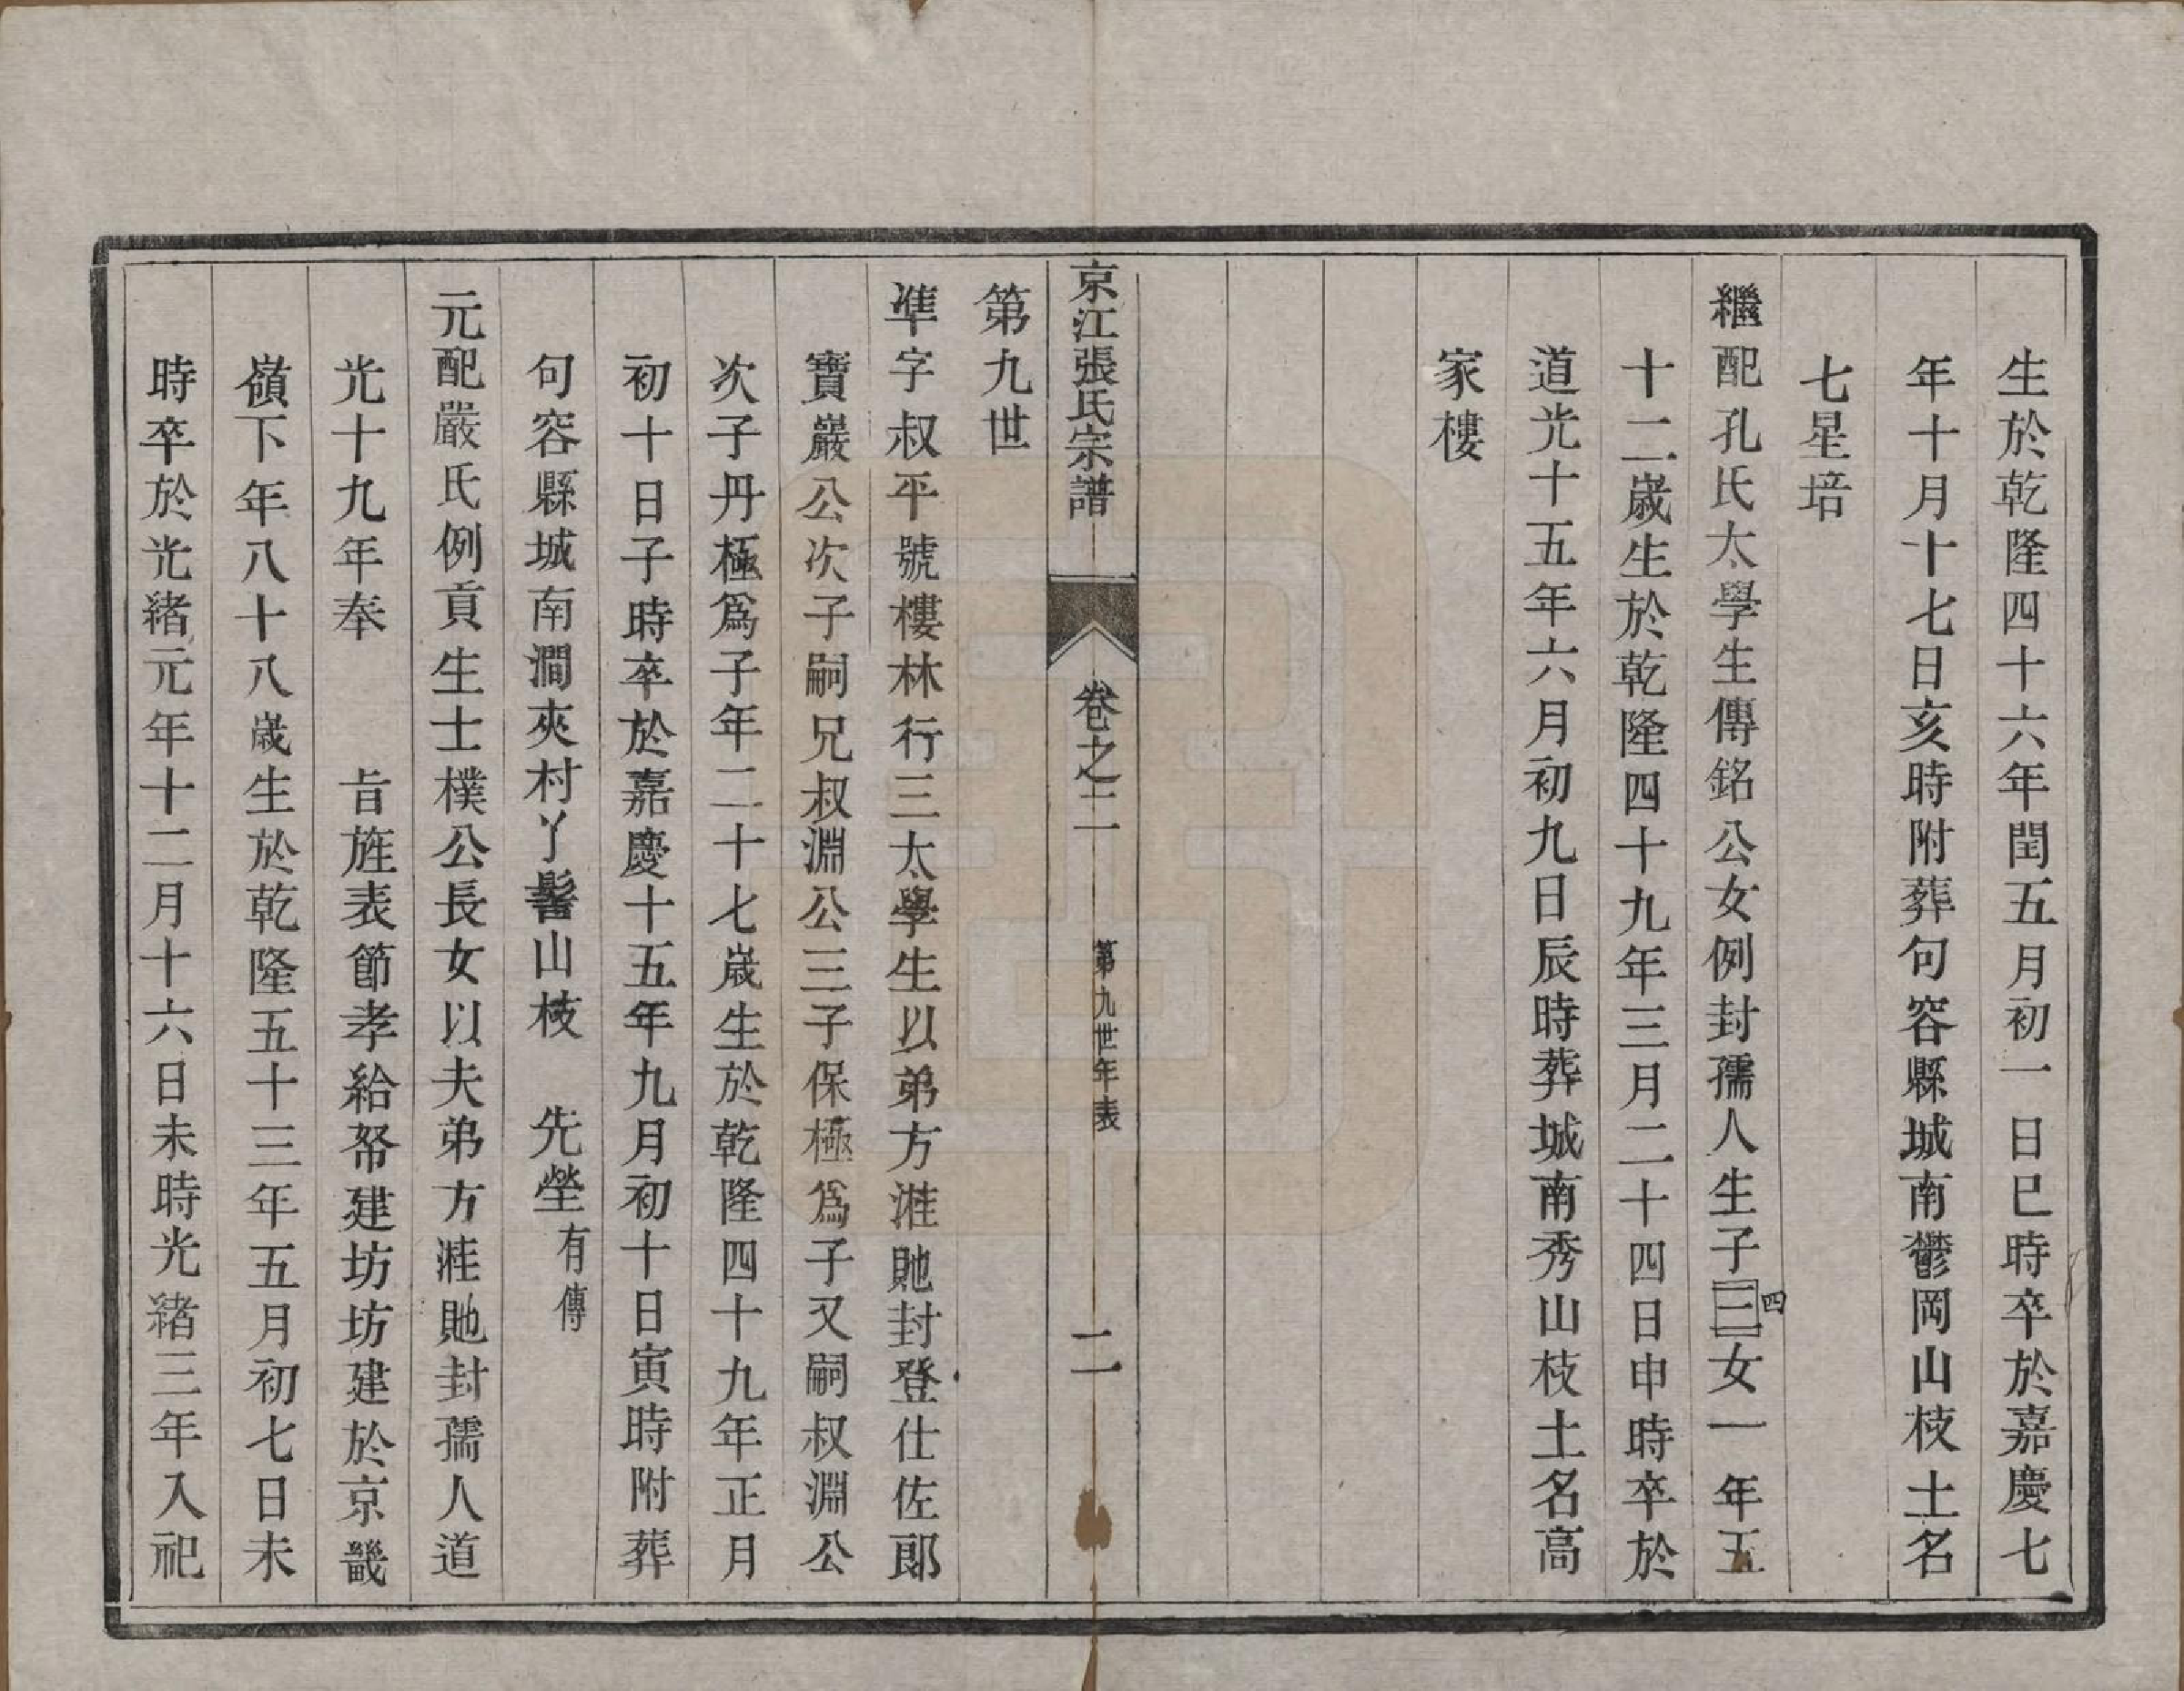 生於乾隆四十六年閏五月初一日巳時卒於嘉慶七
年十月十七日亥時附葬句容縣城南鬱岡山枝土名
七星培
繼配孔氏太學生傳銘公女例封孺人生子三四女一年五
十二歲生於乾隆四十九年三月二十四日申時卒於
道光十五年六月初九日辰時葬城南秀山枝土名高
家樓
京江張氏宗譜 卷之二 第九世年表 二
第九世
準字叔平號樓林行三太學生以弟方漄貤封登仕佐郎
寶巖公次子嗣兄叔淵公三子保極爲子又嗣叔淵公
次子丹極爲子年二十七歲生於乾隆四十九年正月
初十日子時卒於嘉慶十五年九月初十日寅時附葬
句容縣城南澗夾村丫髻山枝 先塋有傳
元配嚴氏例貢生士樸公長女以夫弟方漄貤封孺人道
光十九年奉 旨旌表節孝給帑建坊坊建於京畿
嶺下年八十八歲生於乾隆五十三年五月初七日未
時卒於光緒元年十二月十六日未時光緒三年入祀